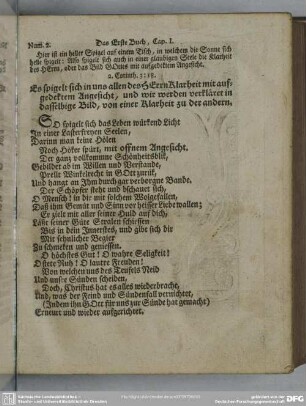 Num. 2. Das Erste Buch, Cap. I.
Hier ist ein heller Spigel auf einem Tisch, in welchem die Sonne sich
helle spigelt: Also spigelt sich auch in einer glaubigen Seele die Klarheit
des HErrn, oder das Bild GOttes mit aufgedektem Angesicht.
2. Corinth. 3: 18.
Es spigelt sich in uns allen des HErrn Klarheit mit auf-
gedektem Angesicht, und wir werden verkläret in
dasselbige Bild, von einer Klarheit zu der andern.
SO spigelt sich das Leben würkend Licht
In einer Lasterfreyen Seelen,
Darinn man keine Hölen
Noch Höker spürt, mit offnem Angesicht.
Der ganz vollkommne Schönheitsblik,
Gebildet ab im Willen und Verstande,
Prellt Winkelrecht in GOtt zurük,
Und hangt an Jhm durch gar verborgne Bande.
Der Schöpfer steht und beschauet sich,
O Mensch! in dir mit solchem Wolgefallen,
Daß ihm Gemüt und Sinn vor heisser Liebe wallen;
Er zielt mit aller seiner Huld auf dich,
Lässt seiner Güte Stralen schiessen
Bis in dein Innerstes, und gibt sich dir
Mit sehnlicher Begier
Zu schmeken und geniessen.
O höchstes Gut! O wahre Seligkeit!
O stete Ruh! O lautre Freuden!
Von welchen uns des Teufels Neid
Und unsre Sünden scheiden.
Doch, Christus hat es alles wiederbracht,
Und, was der Feind und Sündenfall vernichtet,
(Indem ihn GOtt für uns zur Sünde hat gemacht)
Erneurt und wieder aufgerichtet.